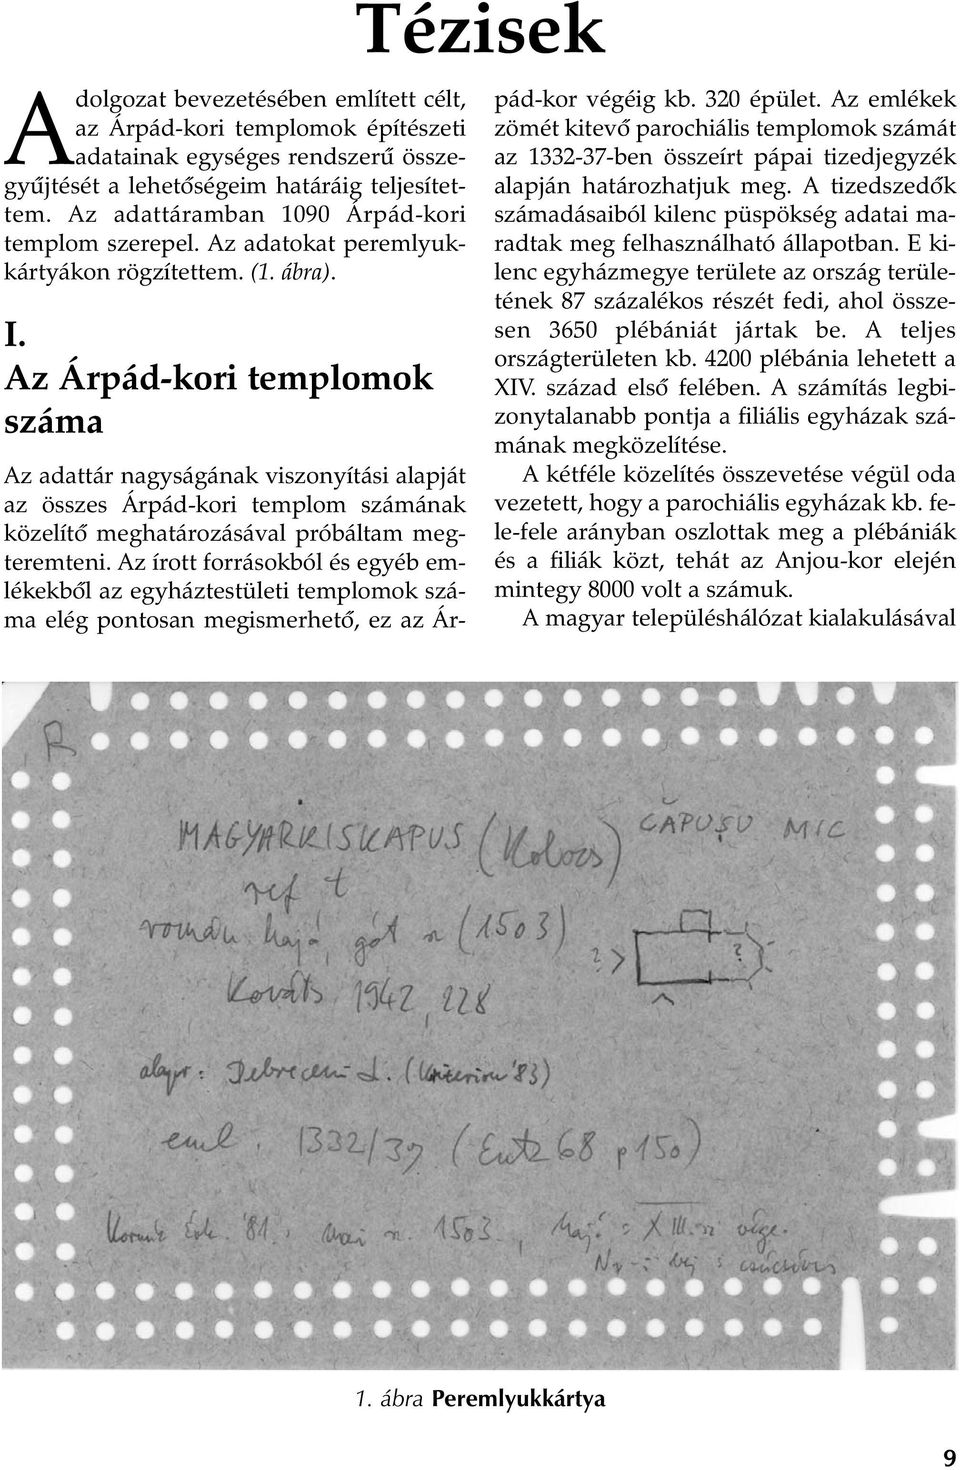 Tézisek
A dolgozat bevezetésében említett célt,
az Árpád-kori templomok építészeti
adatainak egységes rendszerű össze-
gyűjtését a lehetőségeim határáig teljesítet-
tem. Az adattáramban 1090 Árpád-kori
templom szerepel. Az adatokat peremlyuk-
kártyákon rögzítettem. (1. ábra).
I.
Az Árpád-kori templomok
száma
Az adattár nagyságának viszonyítási alapját
az összes Árpád-kori templom számának
közelítő meghatározásával próbáltam meg-
teremteni. Az írott forrásokból és egyéb em-
lékekből az egyháztestületi templomok szá-
ma elég pontosan megismerhető, ez az Ár-
pád-kor végéig kb. 320 épület. Az emlékek
zömét kitevő parochiális templomok számát
az 1332-37-ben összeírt pápai tizedjegyzék
alapján határozhatjuk meg. A tizedszedők
számadásaiból kilenc püspökség adatai ma-
radtak meg felhasználható állapotban. E ki-
lenc egyházmegye területe az ország terüle-
tének 87 százalékos részét fedi, ahol össze-
sen 3650 plébániát jártak be. A teljes
országterületen kb. 4200 plébánia lehetett a
XIV. század első felében. A számítás legbi-
zonytalanabb pontja a filiális egyházak szá-
mának megközelítése.
A kétféle közelítés összevetése végül oda
vezetett, hogy a parochiális egyházak kb. fe-
le-fele arányban oszlottak meg a plébániák
és a filiák közt, tehát az Anjou-kor elején
mintegy 8000 volt a számuk.
A magyar településhálózat kialakulásával
R
MAGYARKISKAPUS (Kolozs) CĂPUŞU MIC
ref t
román hajó, gót n (1503)
? > ?
Kováts 1942, 228
alapr: Debreceni L. (Kriterion '83)
eml. 1332/37 (Entz 68 p 150)
'81: n. 1503, hajó = XIII. sz vége.
1. ábra Peremlyukkártya
9